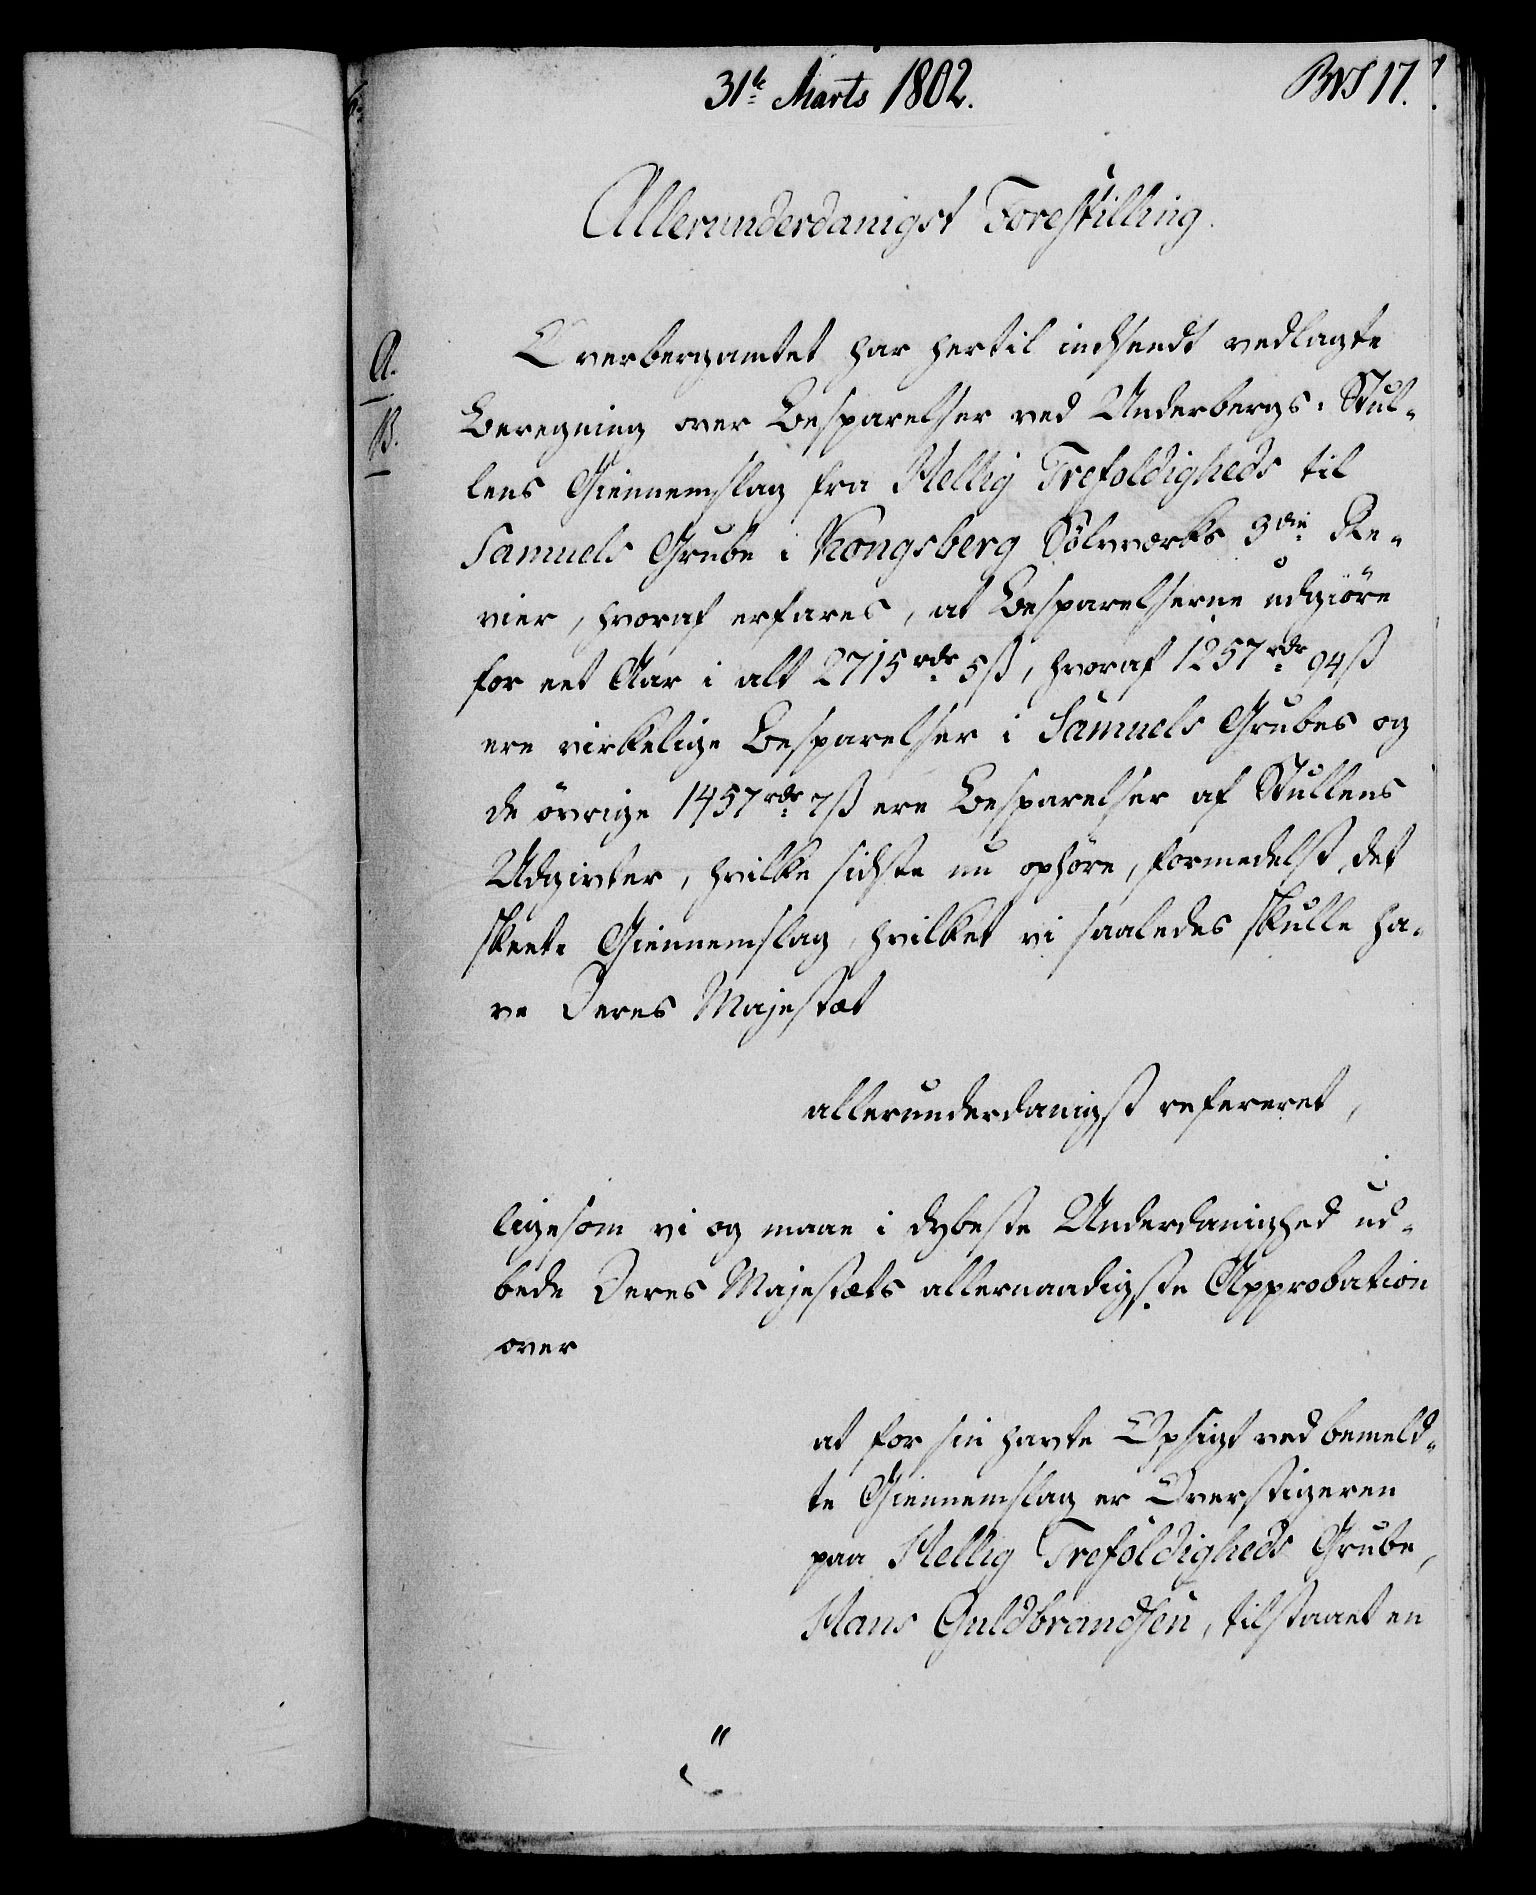 31te Marts 1802.
BVS 17.
Allerunderdanigst Forestilling.
A.
Overbergamtet har hertil indsendt vedlagte
B.
Beregning over Besparelser ved Underbergs-Stul-
lens Giennemslag fra Hellig Trefoldigheds til
Samuels Grube i Kongsberg Sölvværks 3die Re-
vier, hvoraf erfares, at Besparelserne udgiöre
for eet Aar i alt 2715 rdr 5 ß, hvoraf 1257 rdr 94 ß
ere virkelige Besparelser i Samuels Grubes og
de övrige 1457 rdr 7 ß ere Besparelser af Stullens
Udgivter, hvilke sidste nu ophöre, formedelst det
skeete Giennemslag, hvilket vi saaledes skulle ha-
ve Deres Majestæt
allerunderdanigst refereret,
ligesom vi og maae i dybeste Underdanighed ud-
bede Deres Majestæts allernaadigste Approbation
over
at for sin havte Opsigt ved bemeld-
te Giennemslag er Overstigeren
paa Hellig Trefoldigheds Grube,
Hans Guldbrandsen, tilstaaet en